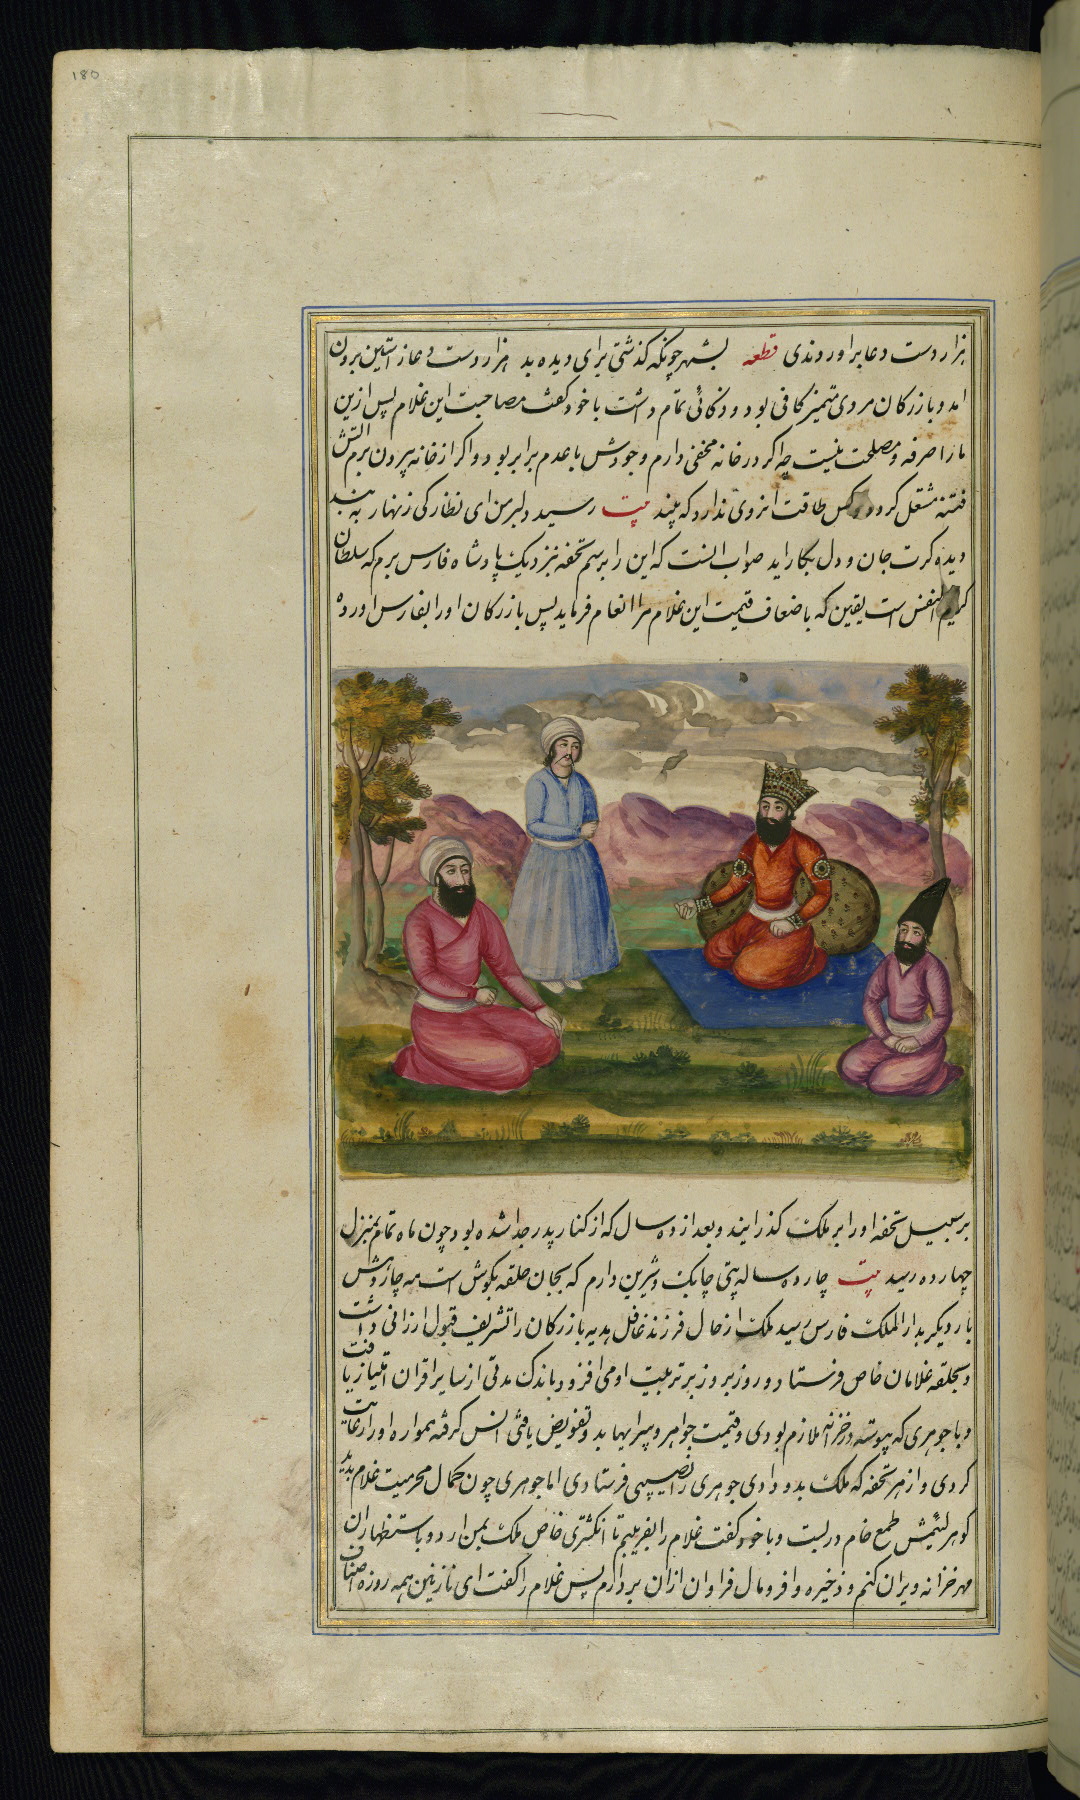 180
هزار دست دعا بر اوردندی قطعه بشهر چونکه گذشتی برای دیده بد هزار دست دعا ز استین برون
امد و بازرکان مردی تمیز کافی بود و ذکائی تمام داشت با خود گفت مصاحبت این غلام پس ازین
مارا صرفه و مصلحت نیست چه اکر در خانه مخفی دارم وجودش با عدم برابر بود و اکر از خانه بیرون برم اتش
فتنه مشتعل کردد و کس طاقت انروی ندارد که بیند بیت رسید دلبر من ای نظارکی زنهار به بند
دیده کرت جان و دل بکار اید صواب انست که این را برسم تحفه نزدیک پادشاه فارس برم که سلطان
کریم النفس است یقین که باضعاف قیمت این غلام مرا انعام فرماید پس بازرکان اورا بفارس اورده
بر سبیل تحفه اورا بر ملک کذرانید و بعد از ده سال که از کنار پدر جدا شده بود چون ماه تمام بمنزل
چهارده رسید بیت چارده ساله بتی چابک و شیرین دارم که بجان حلقه بکوش است مه چاردهش
بار دیکر بدار الملک فارس رسید ملک از حال فرزند غافل هدیه بازرکان را تشریف قبول ارزانی داشت
و بحلقه غلامان خاص فرستاد و روز بروز بر تربیت او می افزود باندک مدتی از سایر اقران امتیاز یافت
و با جوهری که پیوسته در خزانه ملازم بودی و قیمت جواهر و پیرایها بد و تفویض یافتی انس کرفته همواره اورا رعایت
کردی و از هر تحفه که ملک بدو دادی جوهری را نصیبی فرستادی اما جوهری چون کمال محرمیت غلام بدید
کوهر لئیمش طمع خام در بست و با خود گفت غلام را بفریبم تا انکشتری خاص ملک بمن ارد و باستظهار ان
مهر خزانه ویران کنم و ذخیره وافر و مال فراوان ازان بردارم پس غلام را کفت ای نازنین همه روزه اصناف